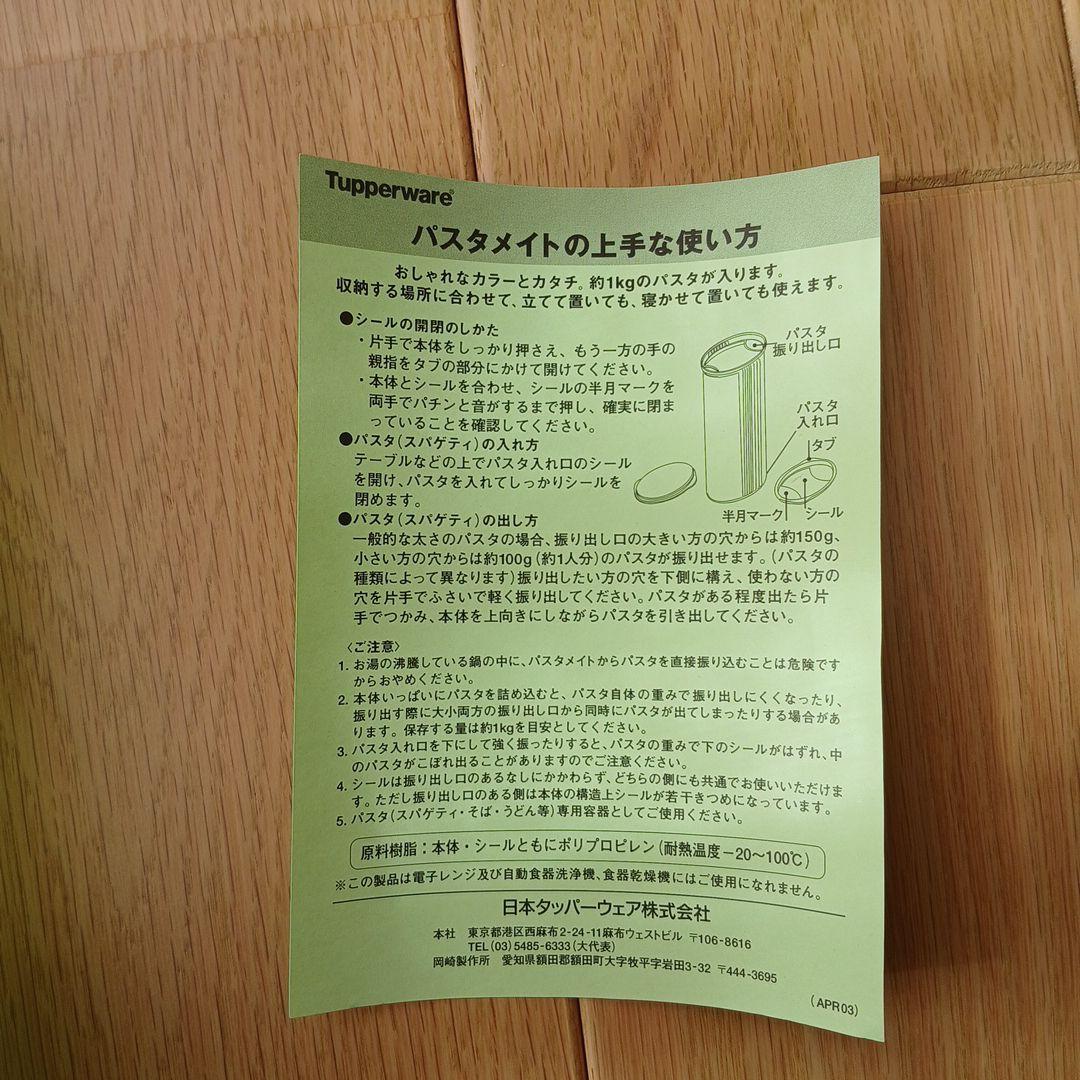 Tupperware®
パスタメイトの上手な使い方
おしゃれなカラーとカタチ。約1kgのパスタが入ります。
収納する場所に合わせて、立てて置いても、寝かせて置いても使えます。
●シールの開閉のしかた
・片手で本体をしっかり押さえ、もう一方の手の
親指をタブの部分にかけて開けてください。
・本体とシールを合わせ、シールの半月マークを
両手でパチンと音がするまで押し、確実に閉ま
っていることを確認してください。
●パスタ(スパゲティ)の入れ方
テーブルなどの上でパスタ入れ口のシール
を開け、パスタを入れてしっかりシールを
閉めます。
パスタ
振り出し口
パスタ
入れ口
タブ
半月マーク
シール
●パスタ(スパゲティ)の出し方
一般的な太さのパスタの場合、振り出し口の大きい方の穴からは約150g、
小さい方の穴からは約100g(約1人分)のパスタが振り出せます。(パスタの
種類によって異なります)振り出したい方の穴を下側に構え、使わない方の
穴を片手でふさいで軽く振り出してください。パスタがある程度出たら片
手でつかみ、本体を上向きにしながらパスタを引き出してください。
〈ご注意〉
1. お湯の沸騰している鍋の中に、パスタメイトからパスタを直接振り込むことは危険です
からおやめください。
2. 本体いっぱいにパスタを詰め込むと、パスタ自体の重みで振り出しにくくなったり、
振り出す際に大小両方の振り出し口から同時にパスタが出てしまったりする場合があ
ります。保存する量は約1kgを目安としてください。
3. パスタ入れ口を下にして強く振ったりすると、パスタの重みで下のシールがはずれ、中
のパスタがこぼれ出ることがありますのでご注意ください。
4. シールは振り出し口のあるなしにかかわらず、どちらの側にも共通でお使いいただけま
す。ただし振り出し口のある側は本体の構造上シールが若干きつめになっています。
5. パスタ(スパゲティ・そば・うどん等)専用容器としてご使用ください。
原料樹脂：本体・シールともにポリプロピレン(耐熱温度−20〜100℃)
※この製品は電子レンジ及び自動食器洗浄機、食器乾燥機にはご使用になれません。
日本タッパーウェア株式会社
本社 東京都港区西麻布2-24-11麻布ウェストビル 〒106-8616
TEL(03)5485-6333(大代表)
岡崎製作所 愛知県額田郡額田町大字牧平字岩田3-32 〒444-3695
(APR03)